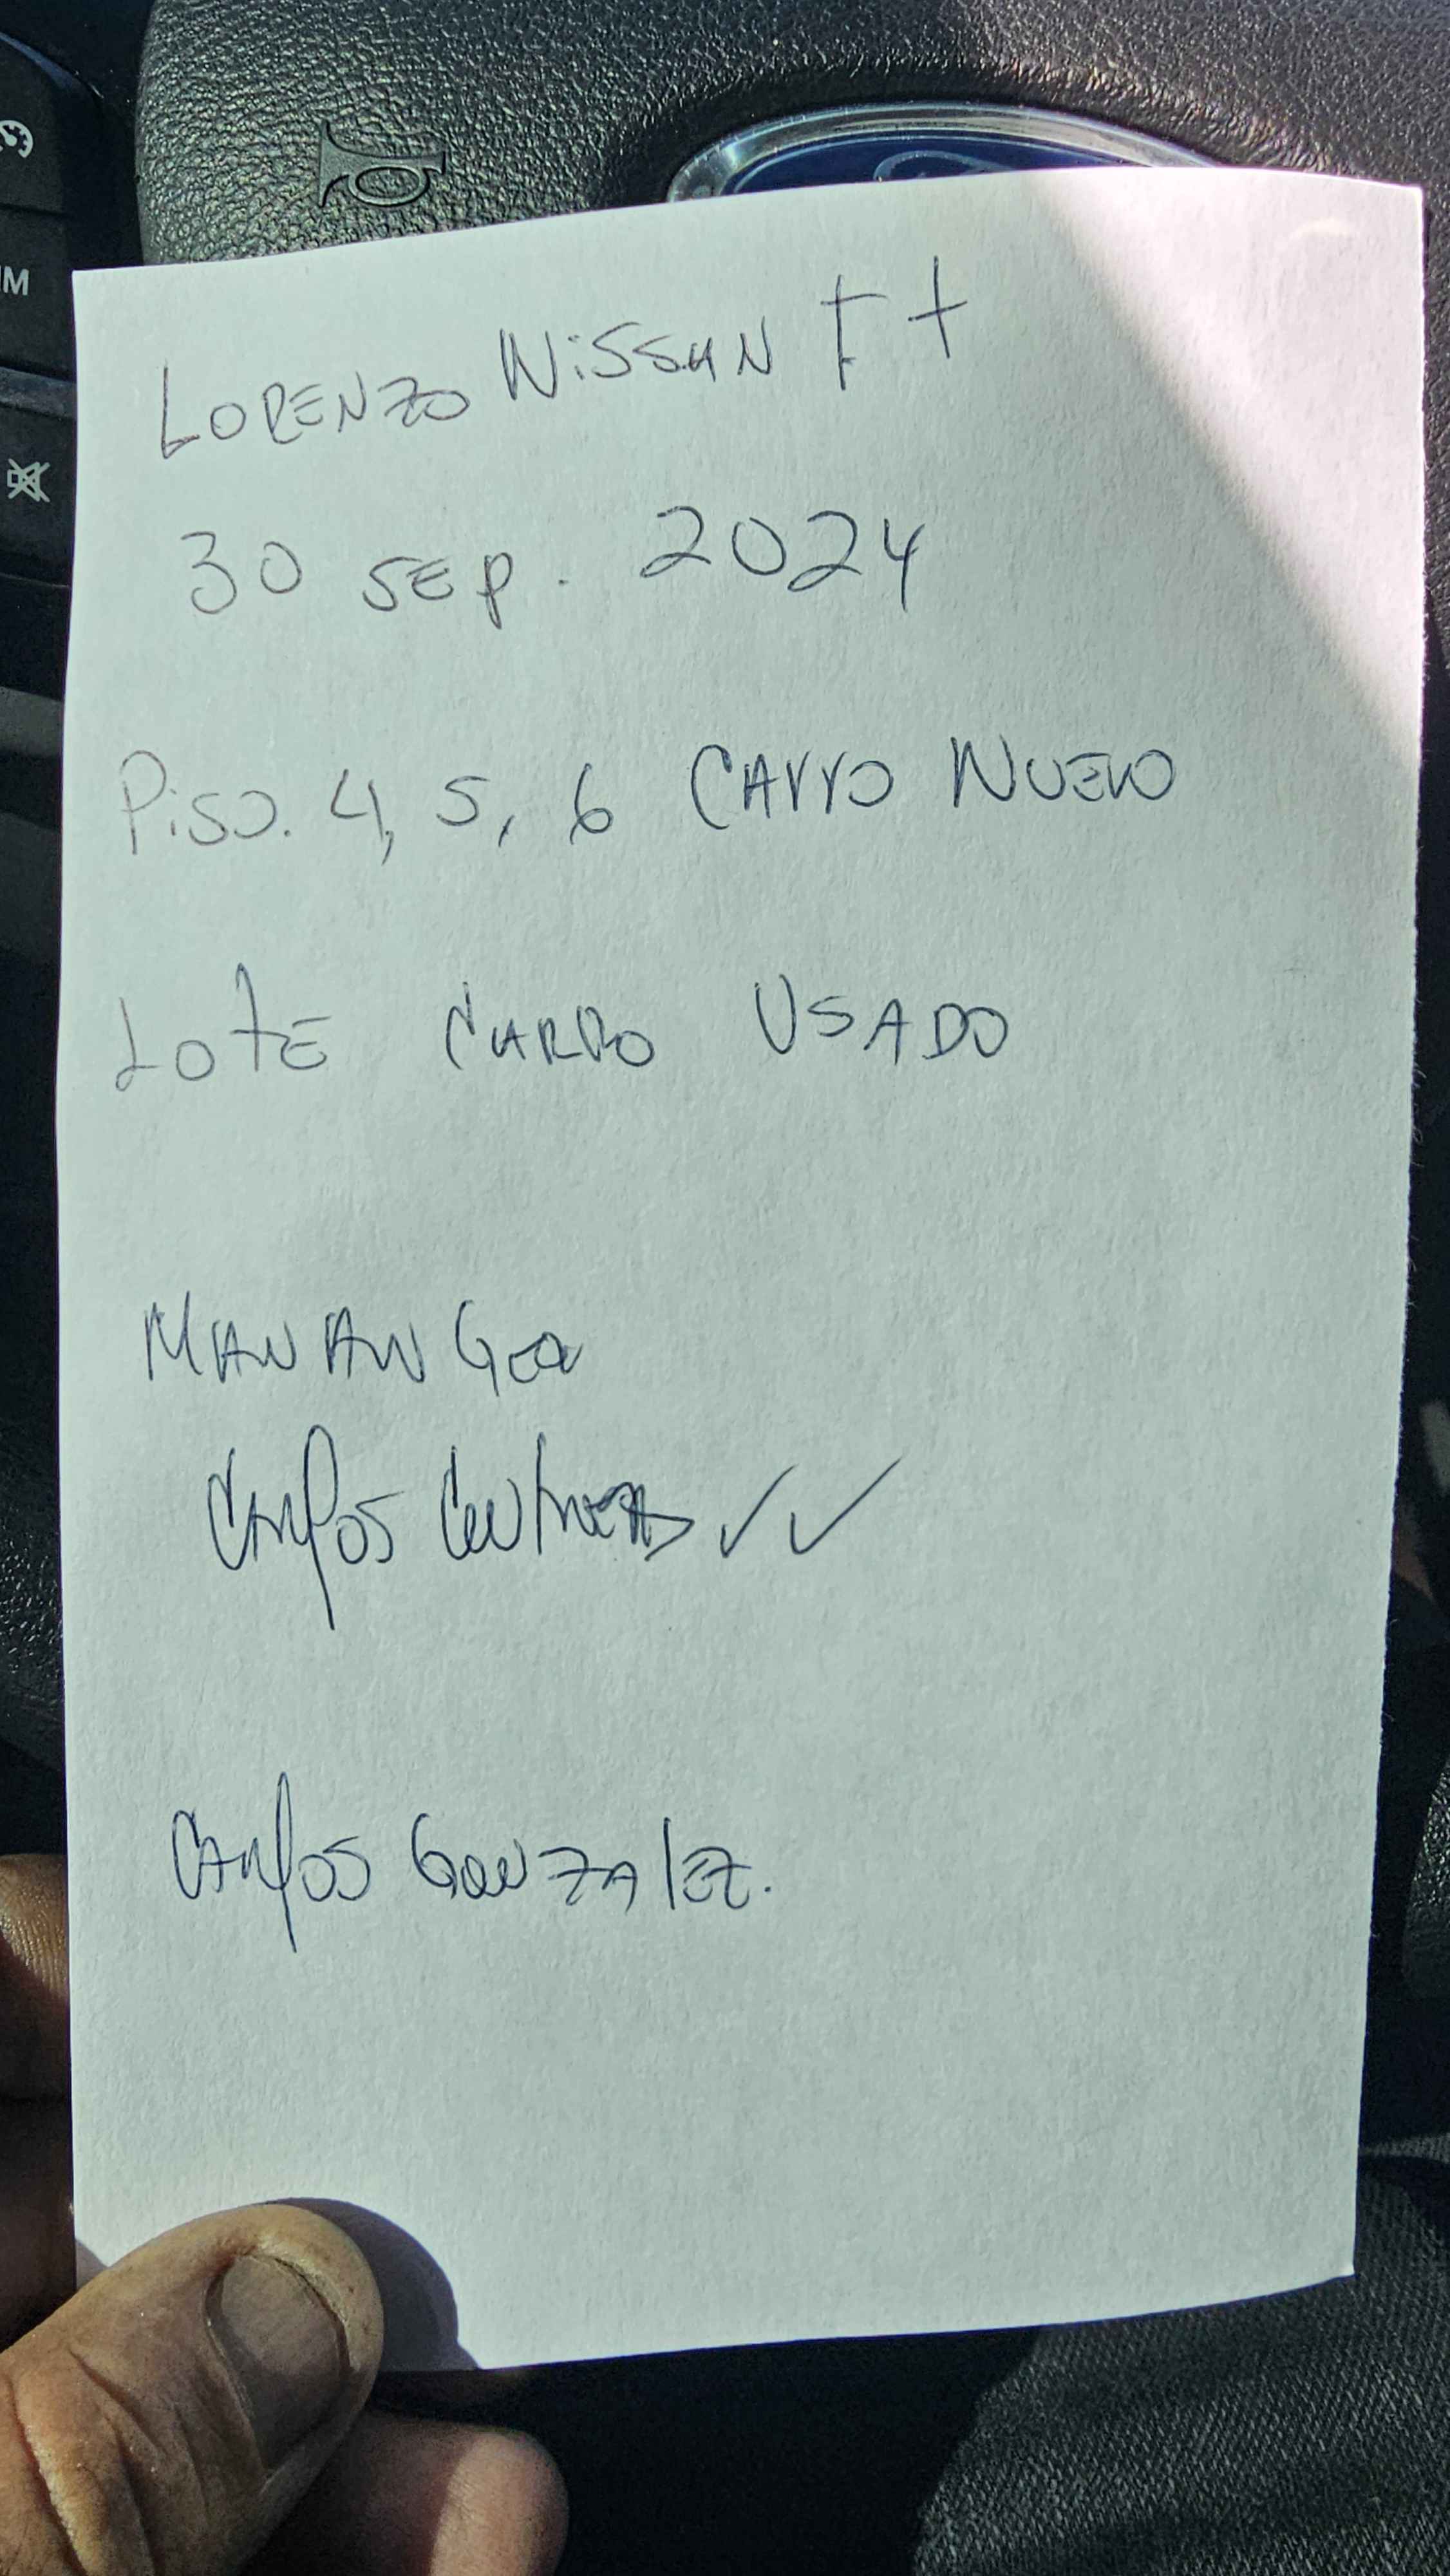 IM
LORENZO NISSAN FT
30 SEP. 2024
PISO. 4, 5, 6 CARRO NUEVO
LOTE CARRO USADO
MANANGER
CARLOS CONTRERAS ✓✓
CARLOS GONZALEZ.